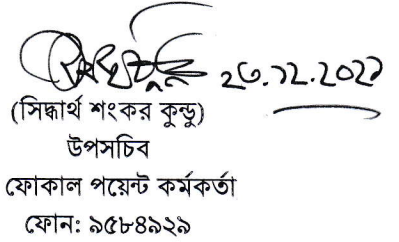 ২৩.১২.২০২১
(সিদ্ধার্থ শংকর কুন্ডু)
উপসচিব
ফোকাল পয়েন্ট কর্মকর্তা
ফোন: ৯৫৮৪৯২৯